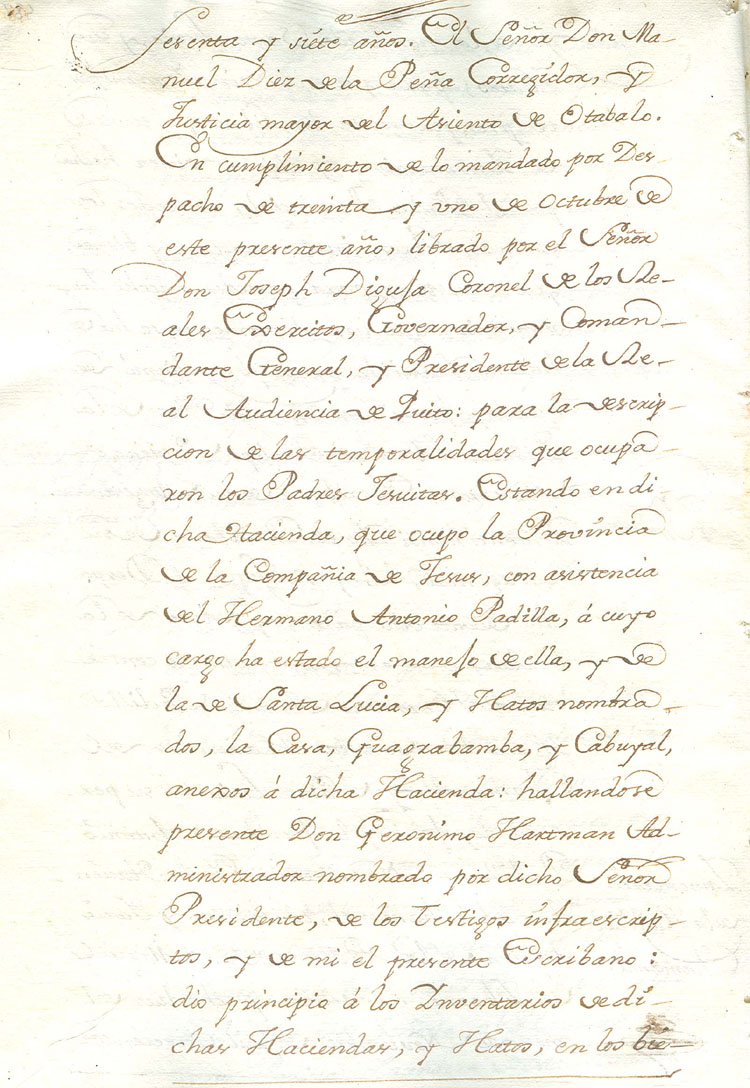 Sesenta y siete años. El Señor Don Ma-
nuel Diez de la Peña Corregidor, y
Justicia mayor del Asiento de Otabalo.
En cumplimiento de lo mandado por Des-
pacho de treinta y uno de Octubre de
este presente año, librado por el Señor
Don Joseph Digusa Coronel de los Re-
ales Exercitos, Governador, y Coman-
dante General, y Presidente de la Re-
al Audiencia de Quito: para la descrip-
cion de las temporalidades que ocupa-
ron los Padres Jesuitas. Estando en di
cha Hacienda, que ocupo la Provincia
de la Compañia de Jesus, con asistencia
del Hermano Antonio Padilla, á cuyo
cargo ha estado el manejo de ella, y de
la de Santa Lucia, y Hatos nombra-
dos, la Casa, Guagrabamba, y Cabuyal,
anexos á dicha Hacienda: hallandose
presente Don Geronimo Hartman Ad-
ministrador nombrado por dicho Señor
Presidente, de los Testigos infraescrip-
tos, y de mi el presente Escribano:
dio principio á los Inventarios de di-
chas Haciendas, y Hatos, en los bie-